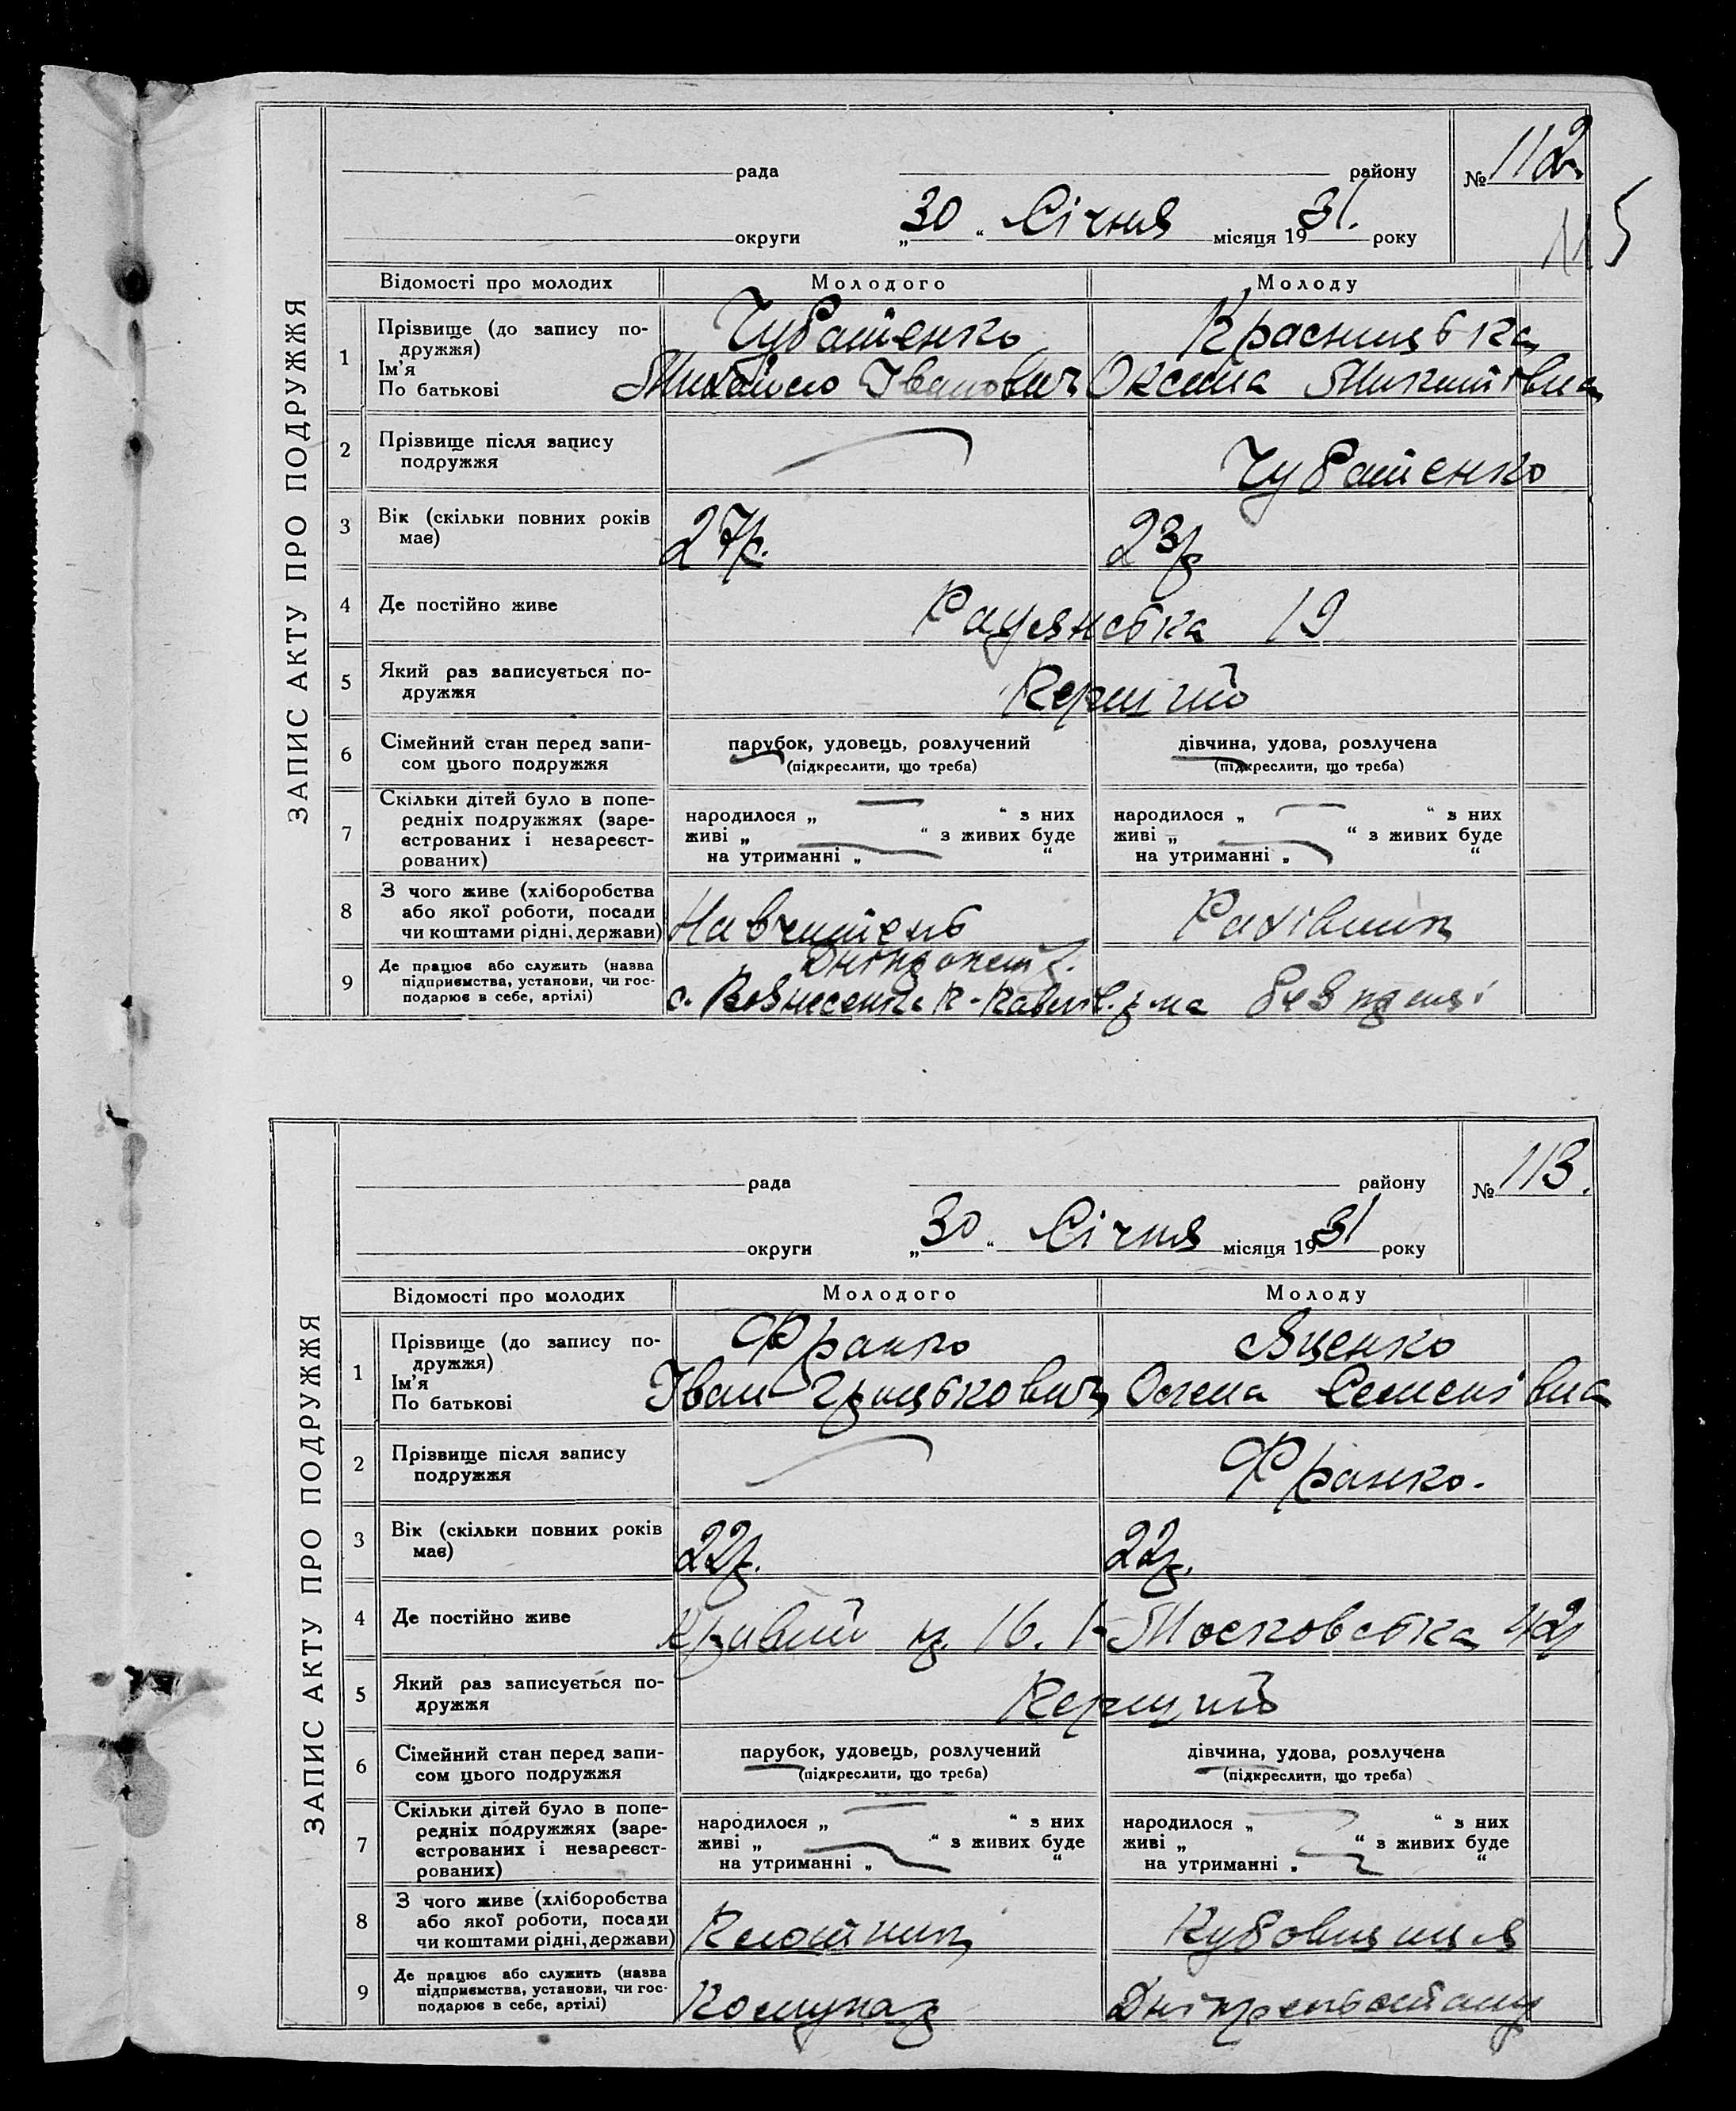 ЗАПИС АКТУ ПРО ПОДРУЖЖЯ
рада району № 112
115
округи „30“ Січня місяця 1931. року
Відомості про молодих Молодого Молоду
1 Прізвище (до запису по- Чубатенко Красницька
дружжя)
Ім'я Михайло Іванович Оксана Микитівна
По батькові
2 Прізвище після запису
подружжя Чубатенко
3 Вік (скільки повних років 27р. 23р
має)
4 Де постійно живе Радянська 19
5 Який раз записується по-
дружжя Перший
6 Сімейний стан перед запи- парубок, удовець, розлучений дівчина, удова, розлучена
сом цього подружжя (підкреслити, що треба) (підкреслити, що треба)
7 Скільки дітей було в попе-
редніх подружжях (заре- народилося „ “ з них народилося „ “ з них
єстрованих і незареєст- живі „ “ з живих буде живі „ “ з живих буде
рованих) на утриманні „ “ на утриманні „ “
8 З чого живе (хліборобства
або якої роботи, посади Навчитель Рахівник
чи коштами рідні, держави)
9 Де працює або служить (назва Дніпропет.
підприємства, установи, чи гос- с. Вознесенка р-на без праці
подарює в себе, артілі)
ЗАПИС АКТУ ПРО ПОДРУЖЖЯ
рада району № 113.
округи „30“ Січня місяця 1931 року
Відомості про молодих Молодого Молоду
1 Прізвище (до запису по- Франко Яценко
дружжя)
Ім'я Іван Грицькович Олена Семенівна
По батькові
2 Прізвище після запису
подружжя Франко.
3 Вік (скільки повних років 22р. 22р.
має)
4 Де постійно живе Кривий 16. Московська 42
5 Який раз записується по-
дружжя Перший
6 Сімейний стан перед запи- парубок, удовець, розлучений дівчина, удова, розлучена
сом цього подружжя (підкреслити, що треба) (підкреслити, що треба)
7 Скільки дітей було в попе-
редніх подружжях (заре- народилося „ “ з них народилося „ “ з них
єстрованих і незареєст- живі „ “ з живих буде живі „ “ з живих буде
рованих) на утриманні „ “ на утриманні „ “
8 З чого живе (хліборобства
або якої роботи, посади Клотник
чи коштами рідні, держави)
9 Де працює або служить (назва
підприємства, установи, чи гос-
подарює в себе, артілі) Дніпрельстану